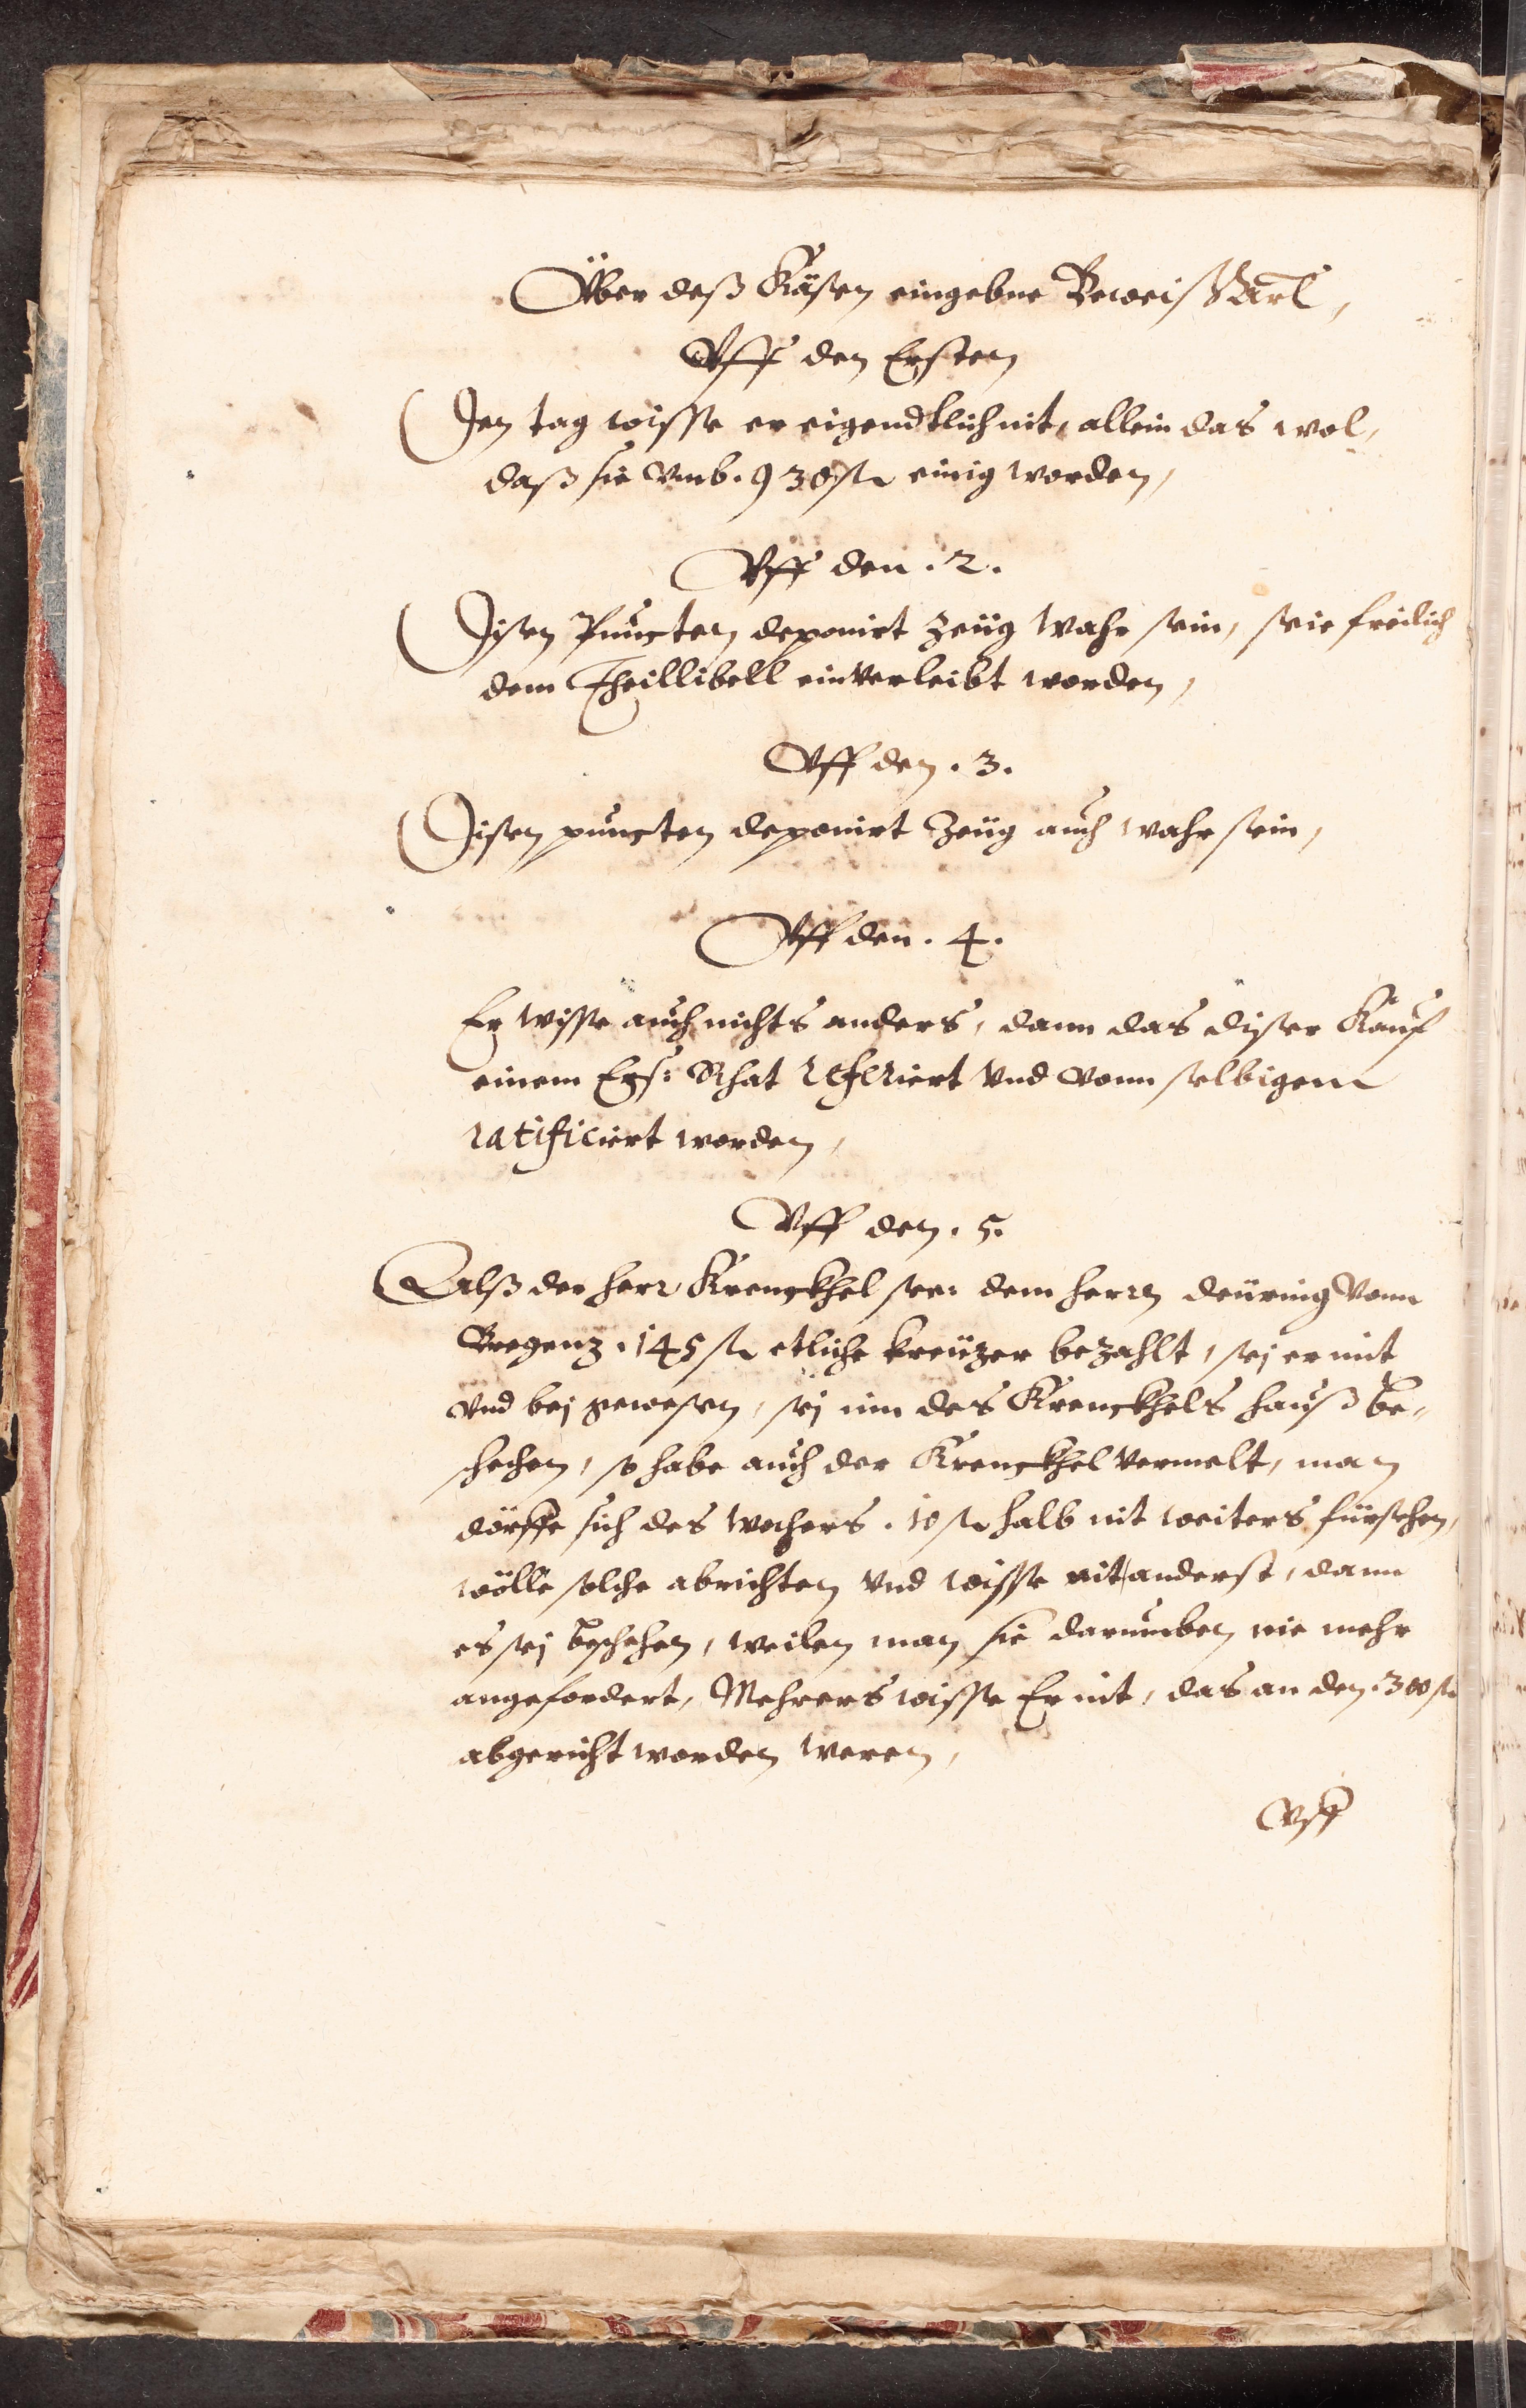 Über deß Käsen eingebne Beweiß Artl,
Vff den Ersten
Den tag wisse er eigendtlich nit, allein das wol,
daß sie vmb. 930 fl einig worden,
Vff den .2.
Disen Puncten deponirt Zeüg wahr sein, seie freilich
dem Theillibell einverleibt worden,
Vff den .3.
Disen puncten deponirt Zeüg auch wahr sein,
Vff den .4.
Er wisse auch nichts anders, dann das diser Kauf
einem Ers: Rhat referiert vnd vonn selbigem
ratificiert worden,
Vff den .5.
Alß der herr Krenckhel see: dem herrn deüring vonn
Bregenz .145 fl etliche kreüzer bezahlt, sej er mit
vnd bej gewesen, sej inn des Krenckhels hauß be-
schechen, so habe auch der Krenckhel vermelt, man
dörffe sich des wochers .10 fl halb nit weiters fürsehen,
wölle solche abrichten vnd wisse nit anderst, dann
es sej beschehen, weilen man sie darumben nie mehr
angefordert, Mehrers wisse Er nit, das an den .300 fl
abgericht worden weren,
Vff